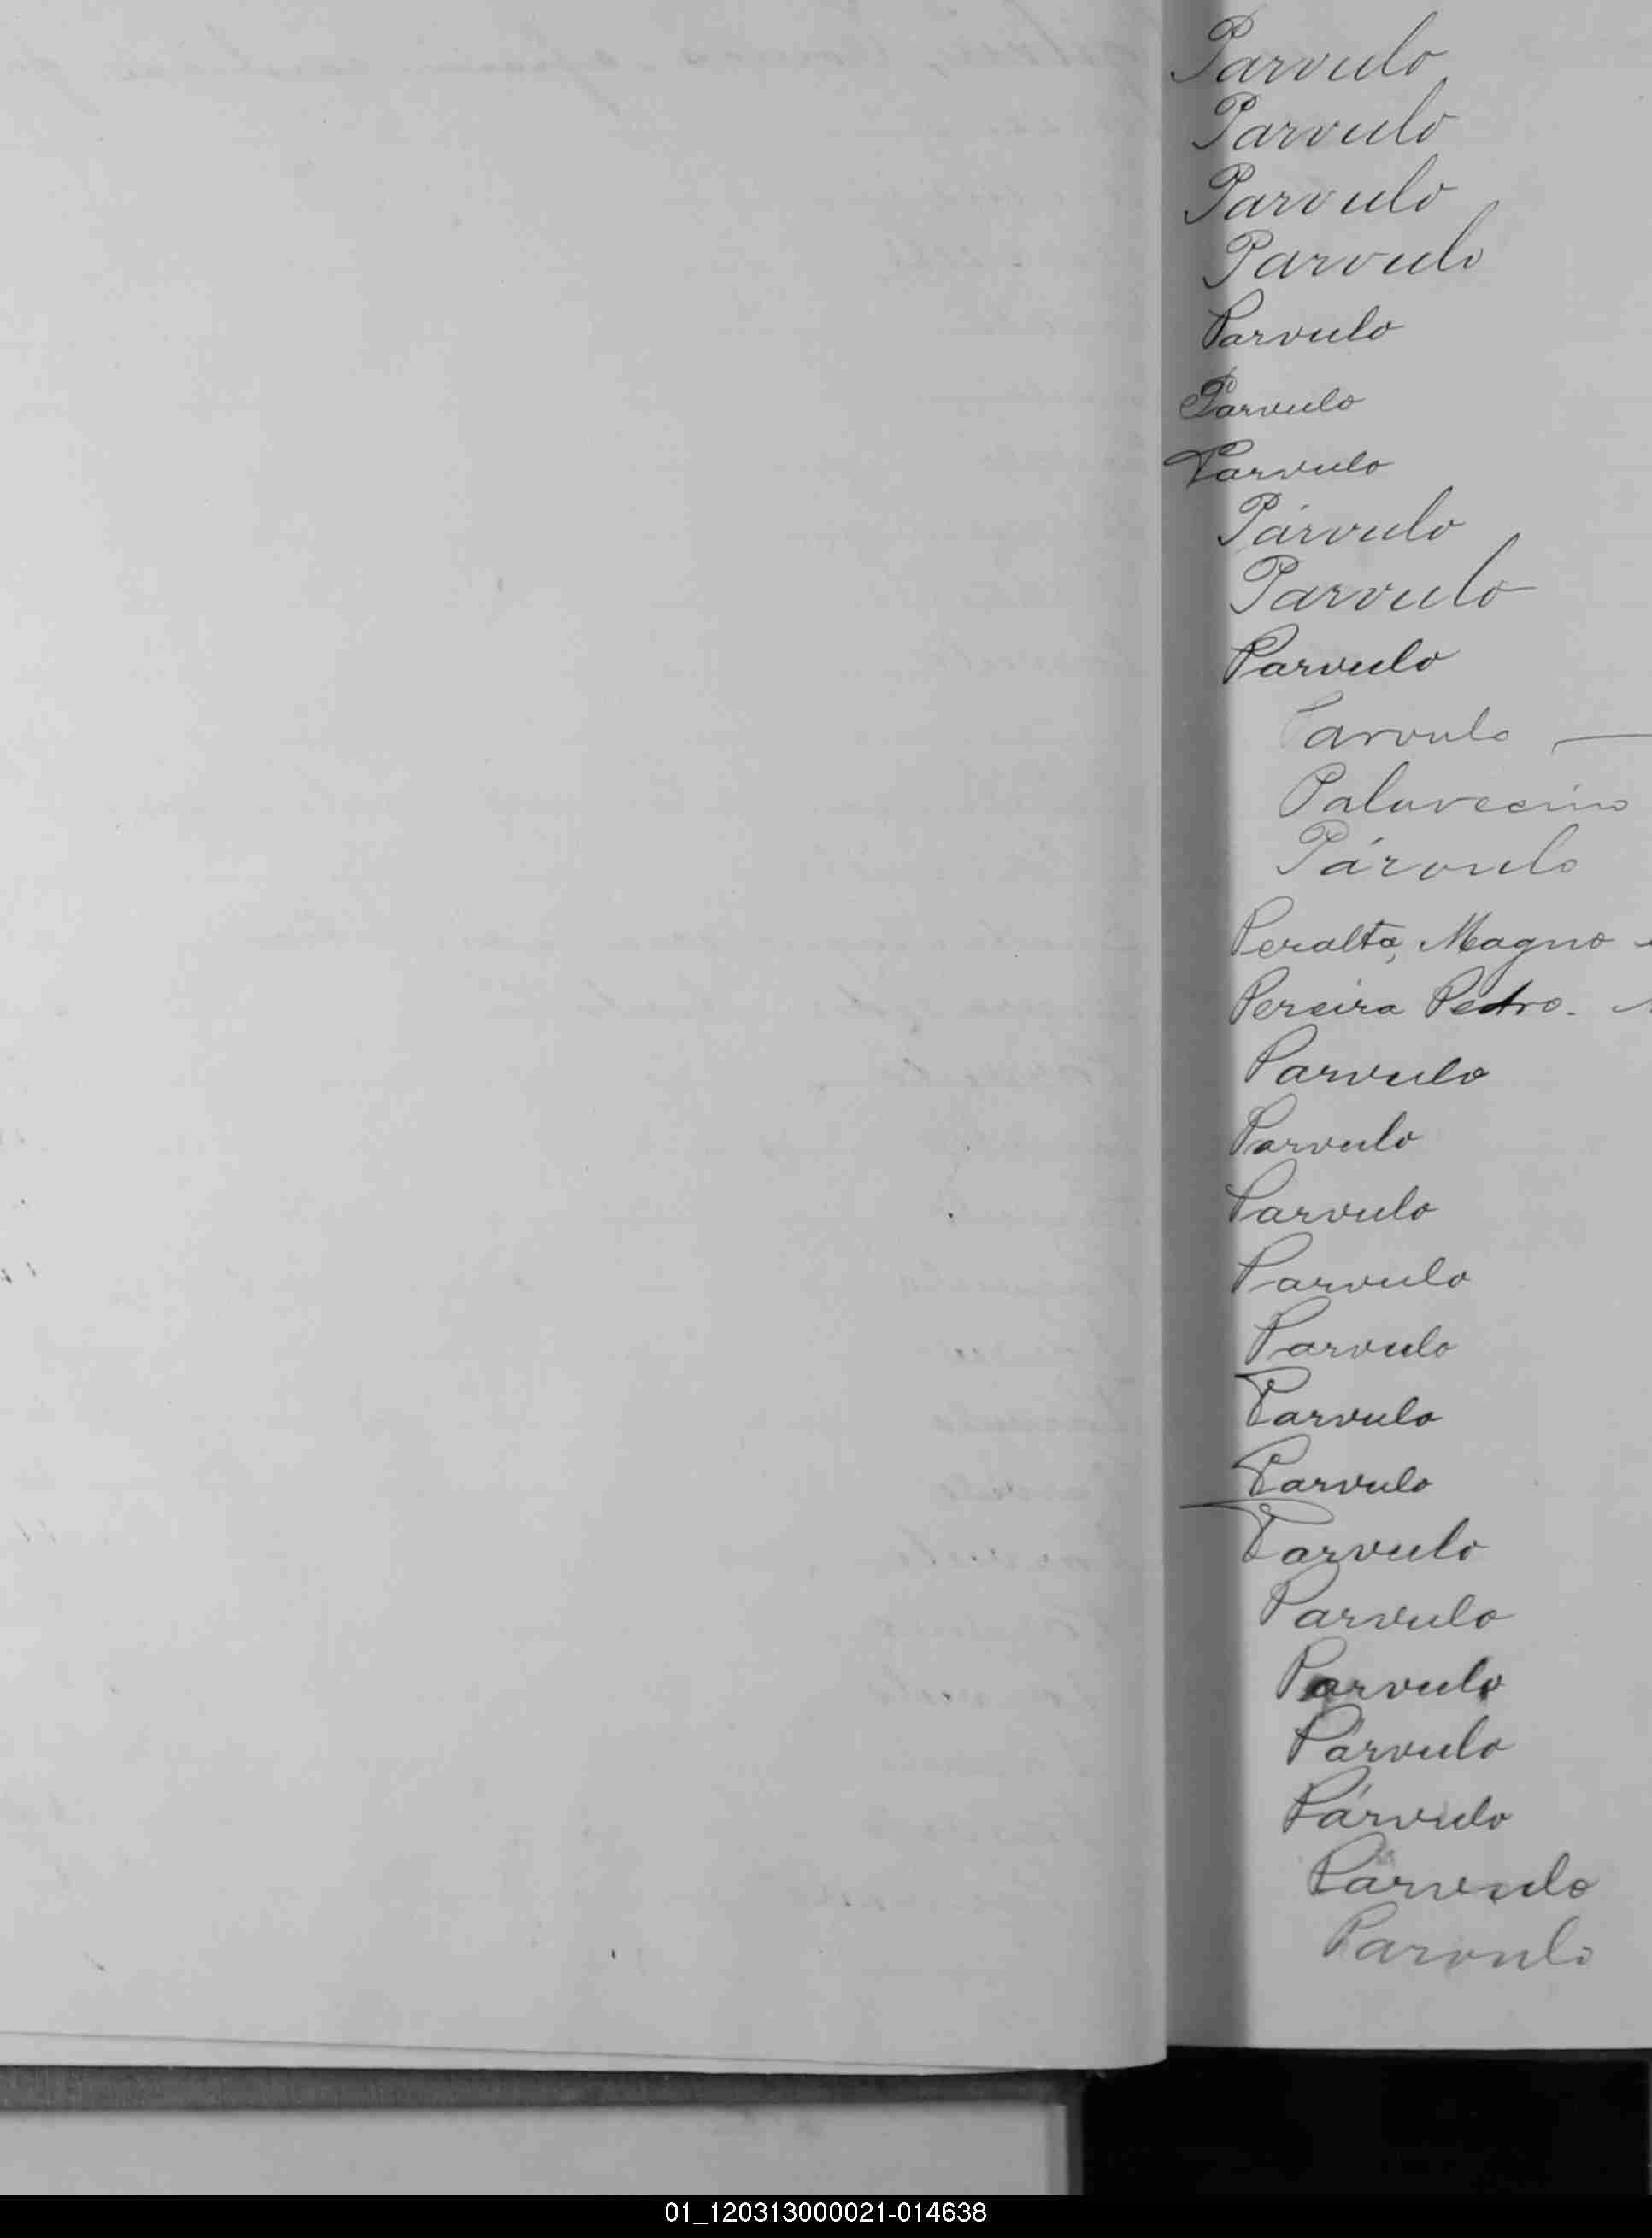 Parvulo
Parvulo
Parvulo
Parvulo
Parvulo
Parvulo
Parvulo
Párvulo
Parvulo
Parvulo
Parvulo
Palavecino
Párvulo
Peralta, Magno
Pereira Pedro.
Parvulo
Parvulo
Parvulo
Parvulo
Parvulo
Parvulo
Parvulo
Parvulo
Parvulo
Parvulo
Párvulo
Párvulo
Parvulo
Parvulo
01_120313000021-014638